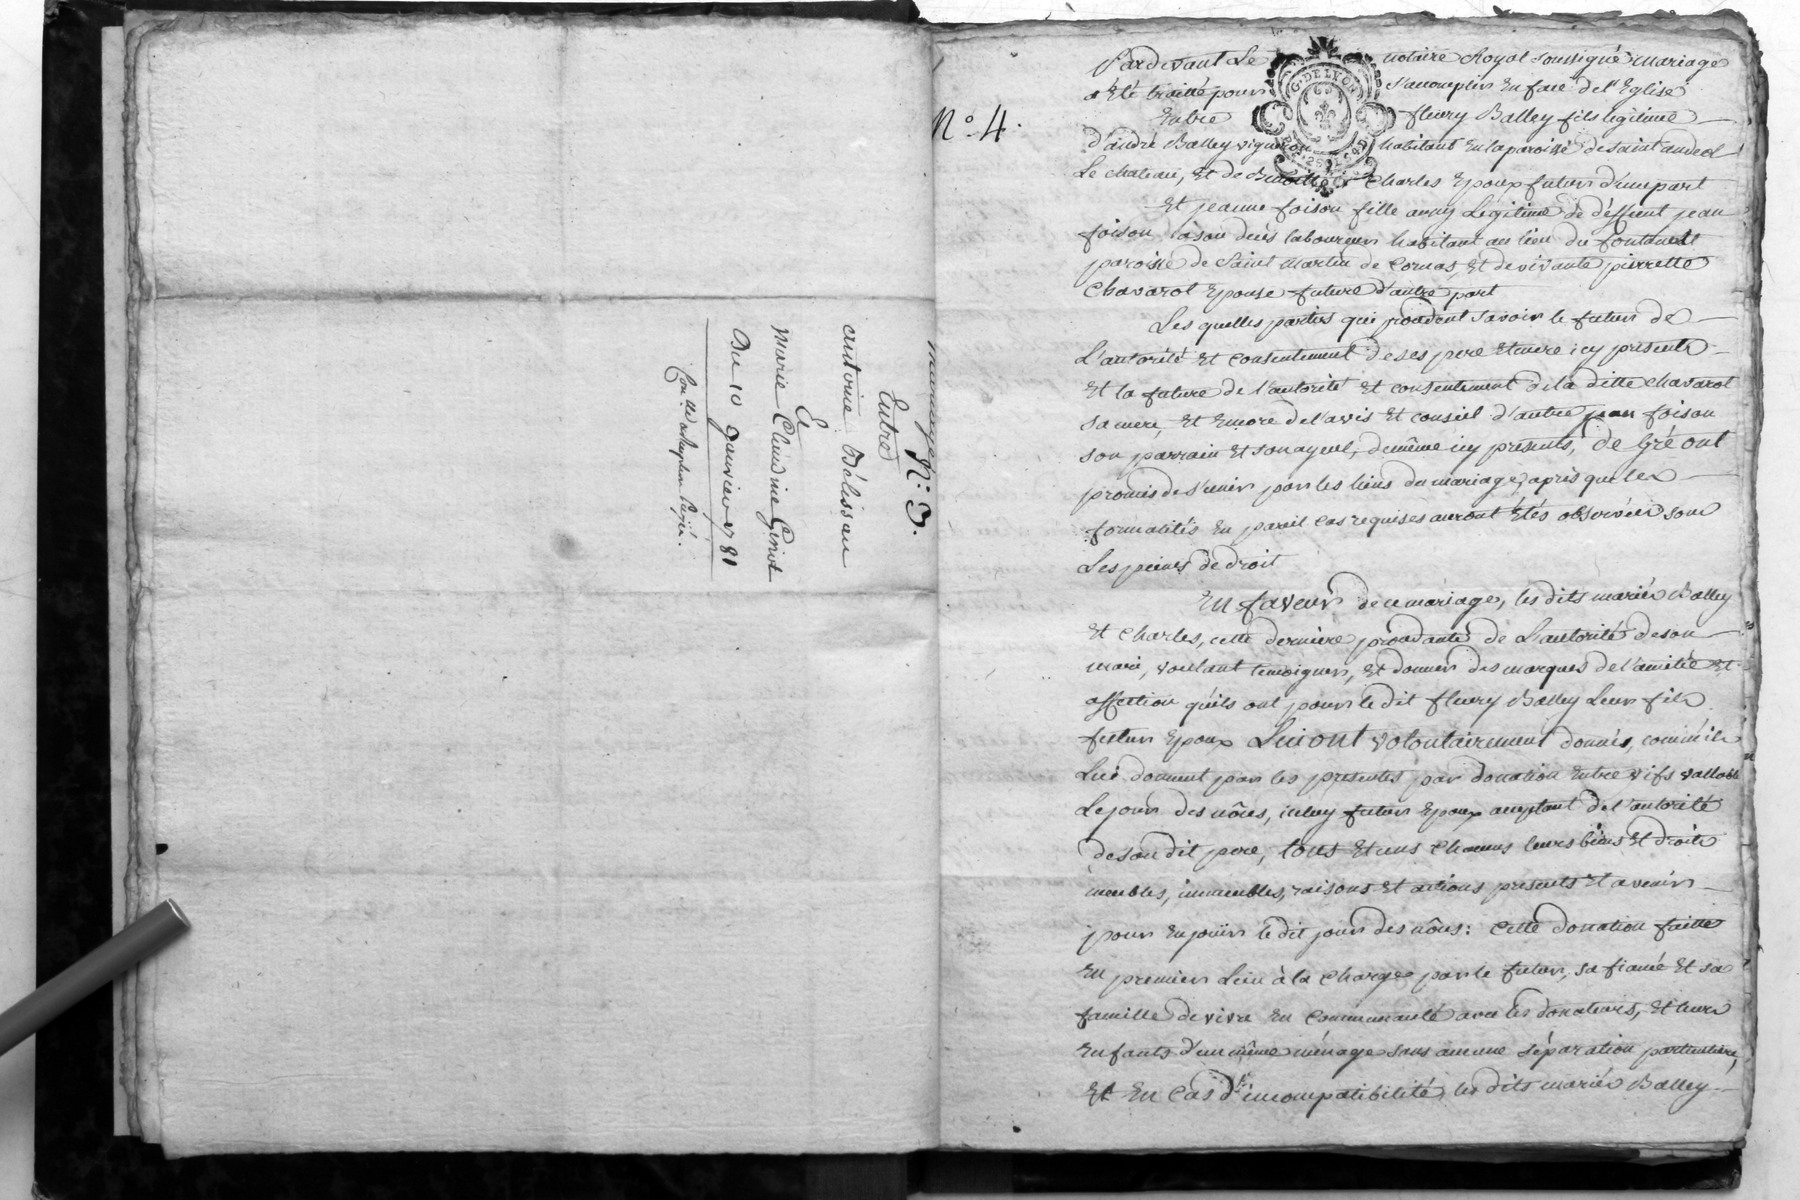 N°. 3.
mariage
Entre
antoine Délissau
Et
Marie Claudine Griot
Du 10 janvier 1781
Con.lle
N° 4.
G. DE LYON
Pardevant Le notaire Royal soussigné mariage
a Eté traitté pour s'accomplir En face de l'Eglise
Entre fleury Balley fils légitime
d'andré Balley vigneron habitant En la paroisse de saint andeol
Le chateau, Et de Charles Epoux futur d'une part
Et jeanne foison fille aussy Légitime de déffunt jean
foison a son decès laboureur habitant au lieu du fontanell
paroisse de Saint Martin de Cornas, Et de vivante pierrette
Chavarot Epouse future d'autre part
Les quelles parties qui procèdent savoir le futur de
L'autorité Et consentement de ses pere Et mere icy présents
Et la future de l'autorité Et consentement de la ditte Chavarot
sa mere, Et Encore de l'avis Et conseil d'autre jean foison
son parrain Et son ayeul, de même icy présents, de Gré ont
promis de s'unir par les liens du mariage, après que les
formalités En pareil cas requises auront Etés observées sous
Les peines de droit
En faveur de ce mariage, les dits mariés Balley
Et Charles, cette derniere procédante de L'autorité de son
mari, voulant temoigner, Et donner des marques de l'amitié Et
affection qu'ils ont pour le dit fleury Balley Leur fils
futur Epoux Lui ont volontairement donnés, comm'ils
Lui donnent par les présentes par donation Entre vifs vallable
Le jour des nôces, iceluy futur Epoux acceptant de l'autorité
de son dit pere, tous Et uns chacuns leurs biens Et droits
meubles, immeubles, raisons Et actions presents Et avenir
pour En joüir le dit jour des nôces: Cette donation faitte
En premier Lieu à la charge par le futur, sa fiancée Et sa
famille de vivre En communauté avec les donateurs, Et leurs
Enfants d'un même ménage sans aucune séparation particuliere,
Et En cas d'incompatibilité, les dits mariés Balley